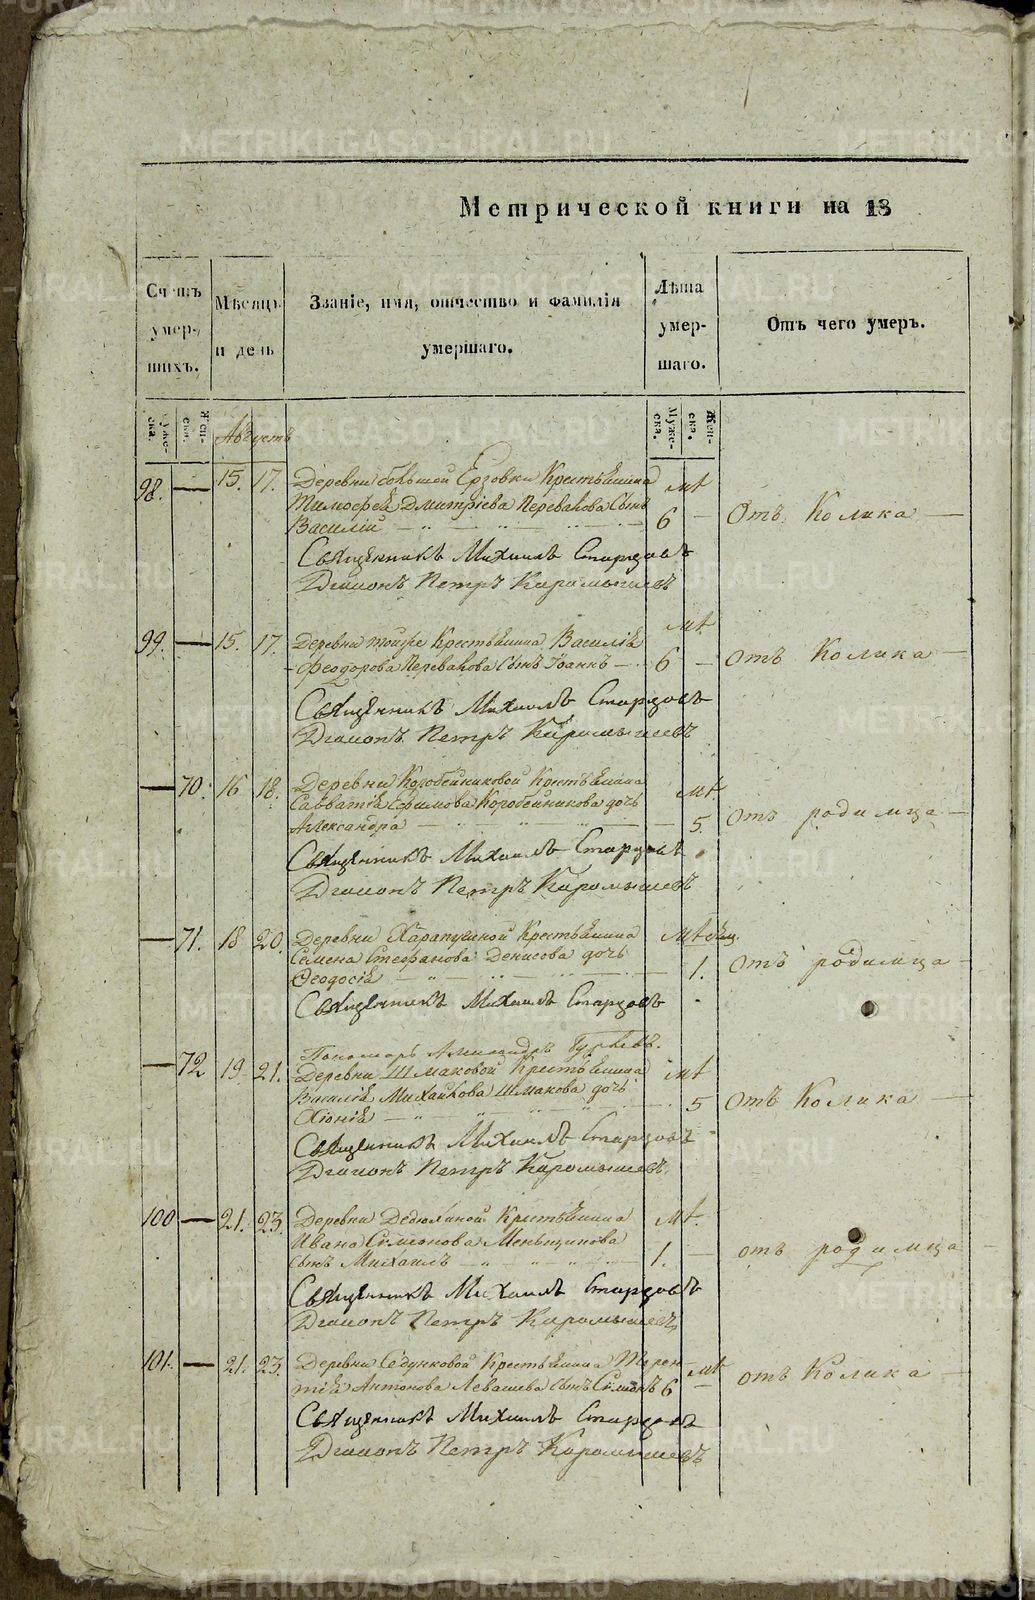 Метрической книги на 18
Счетъ умершихъ. Мѣсяцъ и день Званіе, имя, отчество и фамилія умершаго. Лѣта умершаго. Отъ чего умеръ.
Мужеска. Женска. Августъ Мужеска. Женска.
98. — 15. 17. Деревни большой Ерзовки Крестьянина мѣ
Тимофея Дмитріева Перевалова Сынъ 6 — Отъ Колика —
Василій
Священникъ Михаилъ Старцовъ
Диаконъ Петръ Каромышевъ
99. — 15. 17. Деревни тойже Крестьянина Василія мѣ.
Феодорова Перевалова Сынъ Іоаннъ — 6 — отъ Колика —
Священникъ Михаилъ Старцовъ
Диаконъ Петръ Каромышевъ
— 70. 16 18. Деревни Коробейниковой Крестьянина мѣ.
Савватія Ефимова Коробейникова дочь
Александра — 5. отъ родимца —
Священникъ Михаилъ Старцовъ
Диаконъ Петръ Каромышевъ
— 71. 18 20. Деревни Харапугиной Крестьянина
Семена Стефанова Денисова дочь
Ѳеодосія 1. отъ родимца —
Священникъ Михаилъ Старцовъ
Пономарь Александръ Гурьевъ.
— 72 19. 21. Деревни Шмаковой Крестьянина мѣ
Василія Михайлова Шмакова дочь
Хіонія — 5 отъ Колика —
Священникъ Михаилъ Старцовъ
Диаконъ Петръ Каромышевъ
100 — 21. 23. Деревни Дедюхиной Крестьянина мѣ.
Ивана Симонова Меньщикова
сынъ Михаилъ — 1. — отъ родимца
Священникъ Михаилъ Старцовъ
Диаконъ Петръ Каромышевъ
101. — 21. 23. Деревни Седунковой Крестьянина Терен- мѣ
тія Антонова Левашева сынъ Симіонъ 6 — отъ Колика —
Священникъ Михаилъ Старцовъ
Диаконъ Петръ Каромышевъ
METRIKI.GASO-URAL.RU